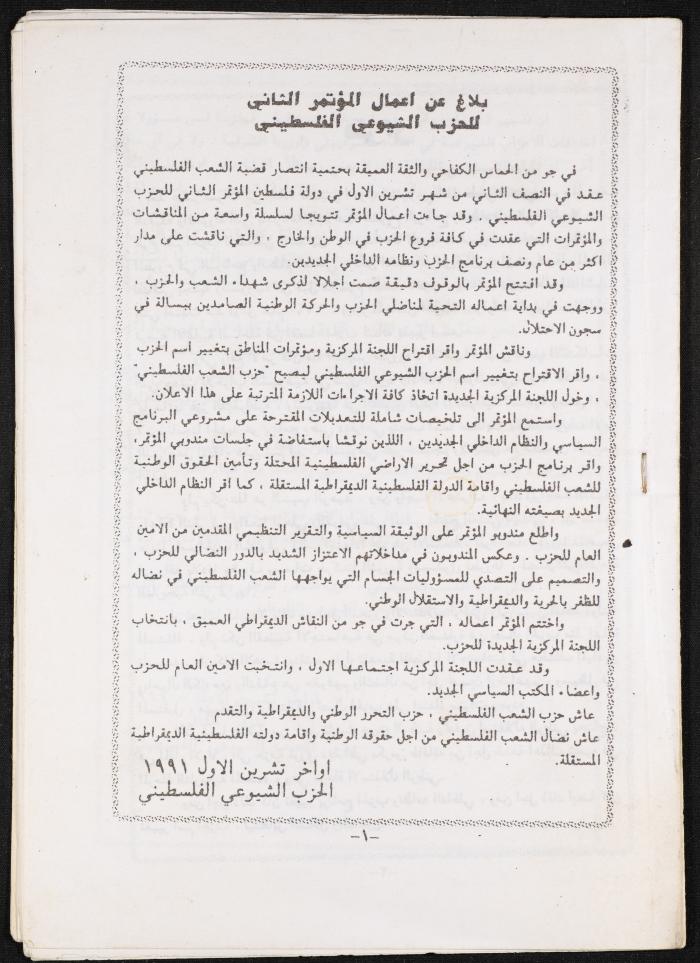 بلاغ عن اعمال المؤتمر الثاني
للحزب الشيوعي الفلسطيني
في جو من الحماس الكفاحي والثقة العميقة بحتمية انتصار قضية الشعب الفلسطيني
عقد في النصف الثاني من شهر تشرين الاول في دولة فلسطين المؤتمر الثاني للحزب
الشيوعي الفلسطيني . وقد جاءت اعمال المؤتمر تتويجا لسلسلة واسعة من المناقشات
والمؤتمرات التي عقدت في كافة فروع الحزب في الوطن والخارج ، والتي ناقشت على مدار
اكثر من عام ونصف برنامج الحزب ونظامه الداخلي الجديدين.
وقد افتتح المؤتمر بالوقوف دقيقة صمت اجلالا لذكرى شهداء الشعب والحزب ،
ووجهت في بداية اعماله التحية لمناضلي الحزب والحركة الوطنية الصامدين ببسالة في
سجون الاحتلال.
وناقش المؤتمر واقر اقتراح اللجنة المركزية ومؤتمرات المناطق بتغيير اسم الحزب
، واقر الاقتراح بتغيير اسم الحزب الشيوعي الفلسطيني ليصبح "حزب الشعب الفلسطيني"
، وخول اللجنة المركزية الجديدة اتخاذ كافة الاجراءات اللازمة المترتبة على هذا الاعلان.
واستمع المؤتمر الى تلخيصات شاملة للتعديلات المقترحة على مشروعي البرنامج
السياسي والنظام الداخلي الجديدين ، اللذين نوقشا باستفاضة في جلسات مندوبي المؤتمر،
واقر برنامج الحزب من اجل تحرير الاراضي الفلسطينية المحتلة وتأمين الحقوق الوطنية
للشعب الفلسطيني واقامة الدولة الفلسطينية الديمقراطية المستقلة ، كما اقر النظام الداخلي
الجديد بصيغته النهائية.
واطلع مندوبو المؤتمر على الوثيقة السياسية والتقرير التنظيمي المقدمين من الامين
العام للحزب . وعكس المندوبون في مداخلاتهم الاعتزاز الشديد بالدور النضالي للحزب ،
والتصميم على التصدي للمسؤوليات الجسام التي يواجهها الشعب الفلسطيني في نضاله
للظفر بالحرية والديمقراطية والاستقلال الوطني.
واختتم المؤتمر اعماله ، التي جرت في جو من النقاش الديمقراطي العميق ، بانتخاب
اللجنة المركزية الجديدة للحزب.
وقد عقدت اللجنة المركزية اجتماعها الاول ، وانتخبت الامين العام للحزب
واعضاء المكتب السياسي الجديد.
عاش حزب الشعب الفلسطيني ، حزب التحرر الوطني والديمقراطية والتقدم
عاش نضال الشعب الفلسطيني من اجل حقوقه الوطنية واقامة دولته الفلسطينية الديمقراطية
المستقلة.
اواخر تشرين الاول ١٩٩١
الحزب الشيوعي الفلسطيني
-١-